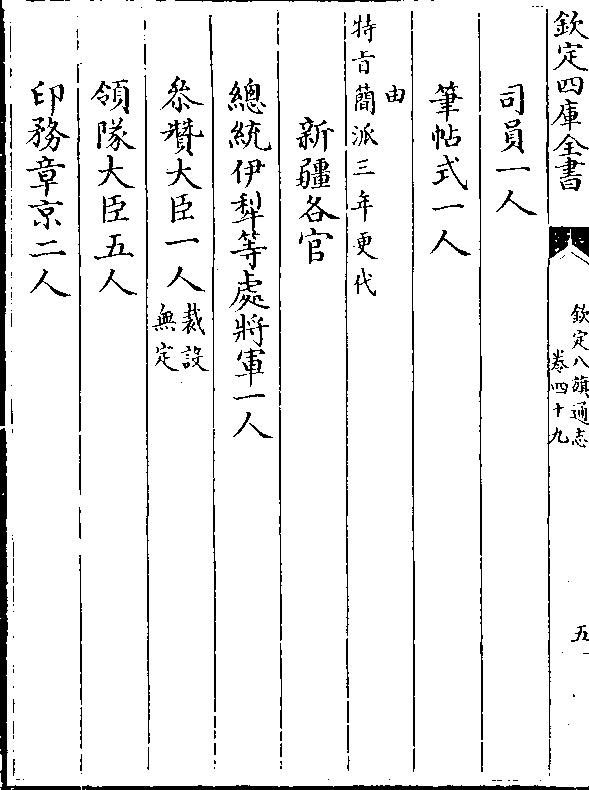 欽定四庫全書
欽定八旗通志
卷四十九
五
司員一人
筆帖式一人
由
特旨簡派三年更代
新疆各官
總統伊犁等處將軍一人
叅贊大臣一人裁設無定
領隊大臣五人
印務章京二人